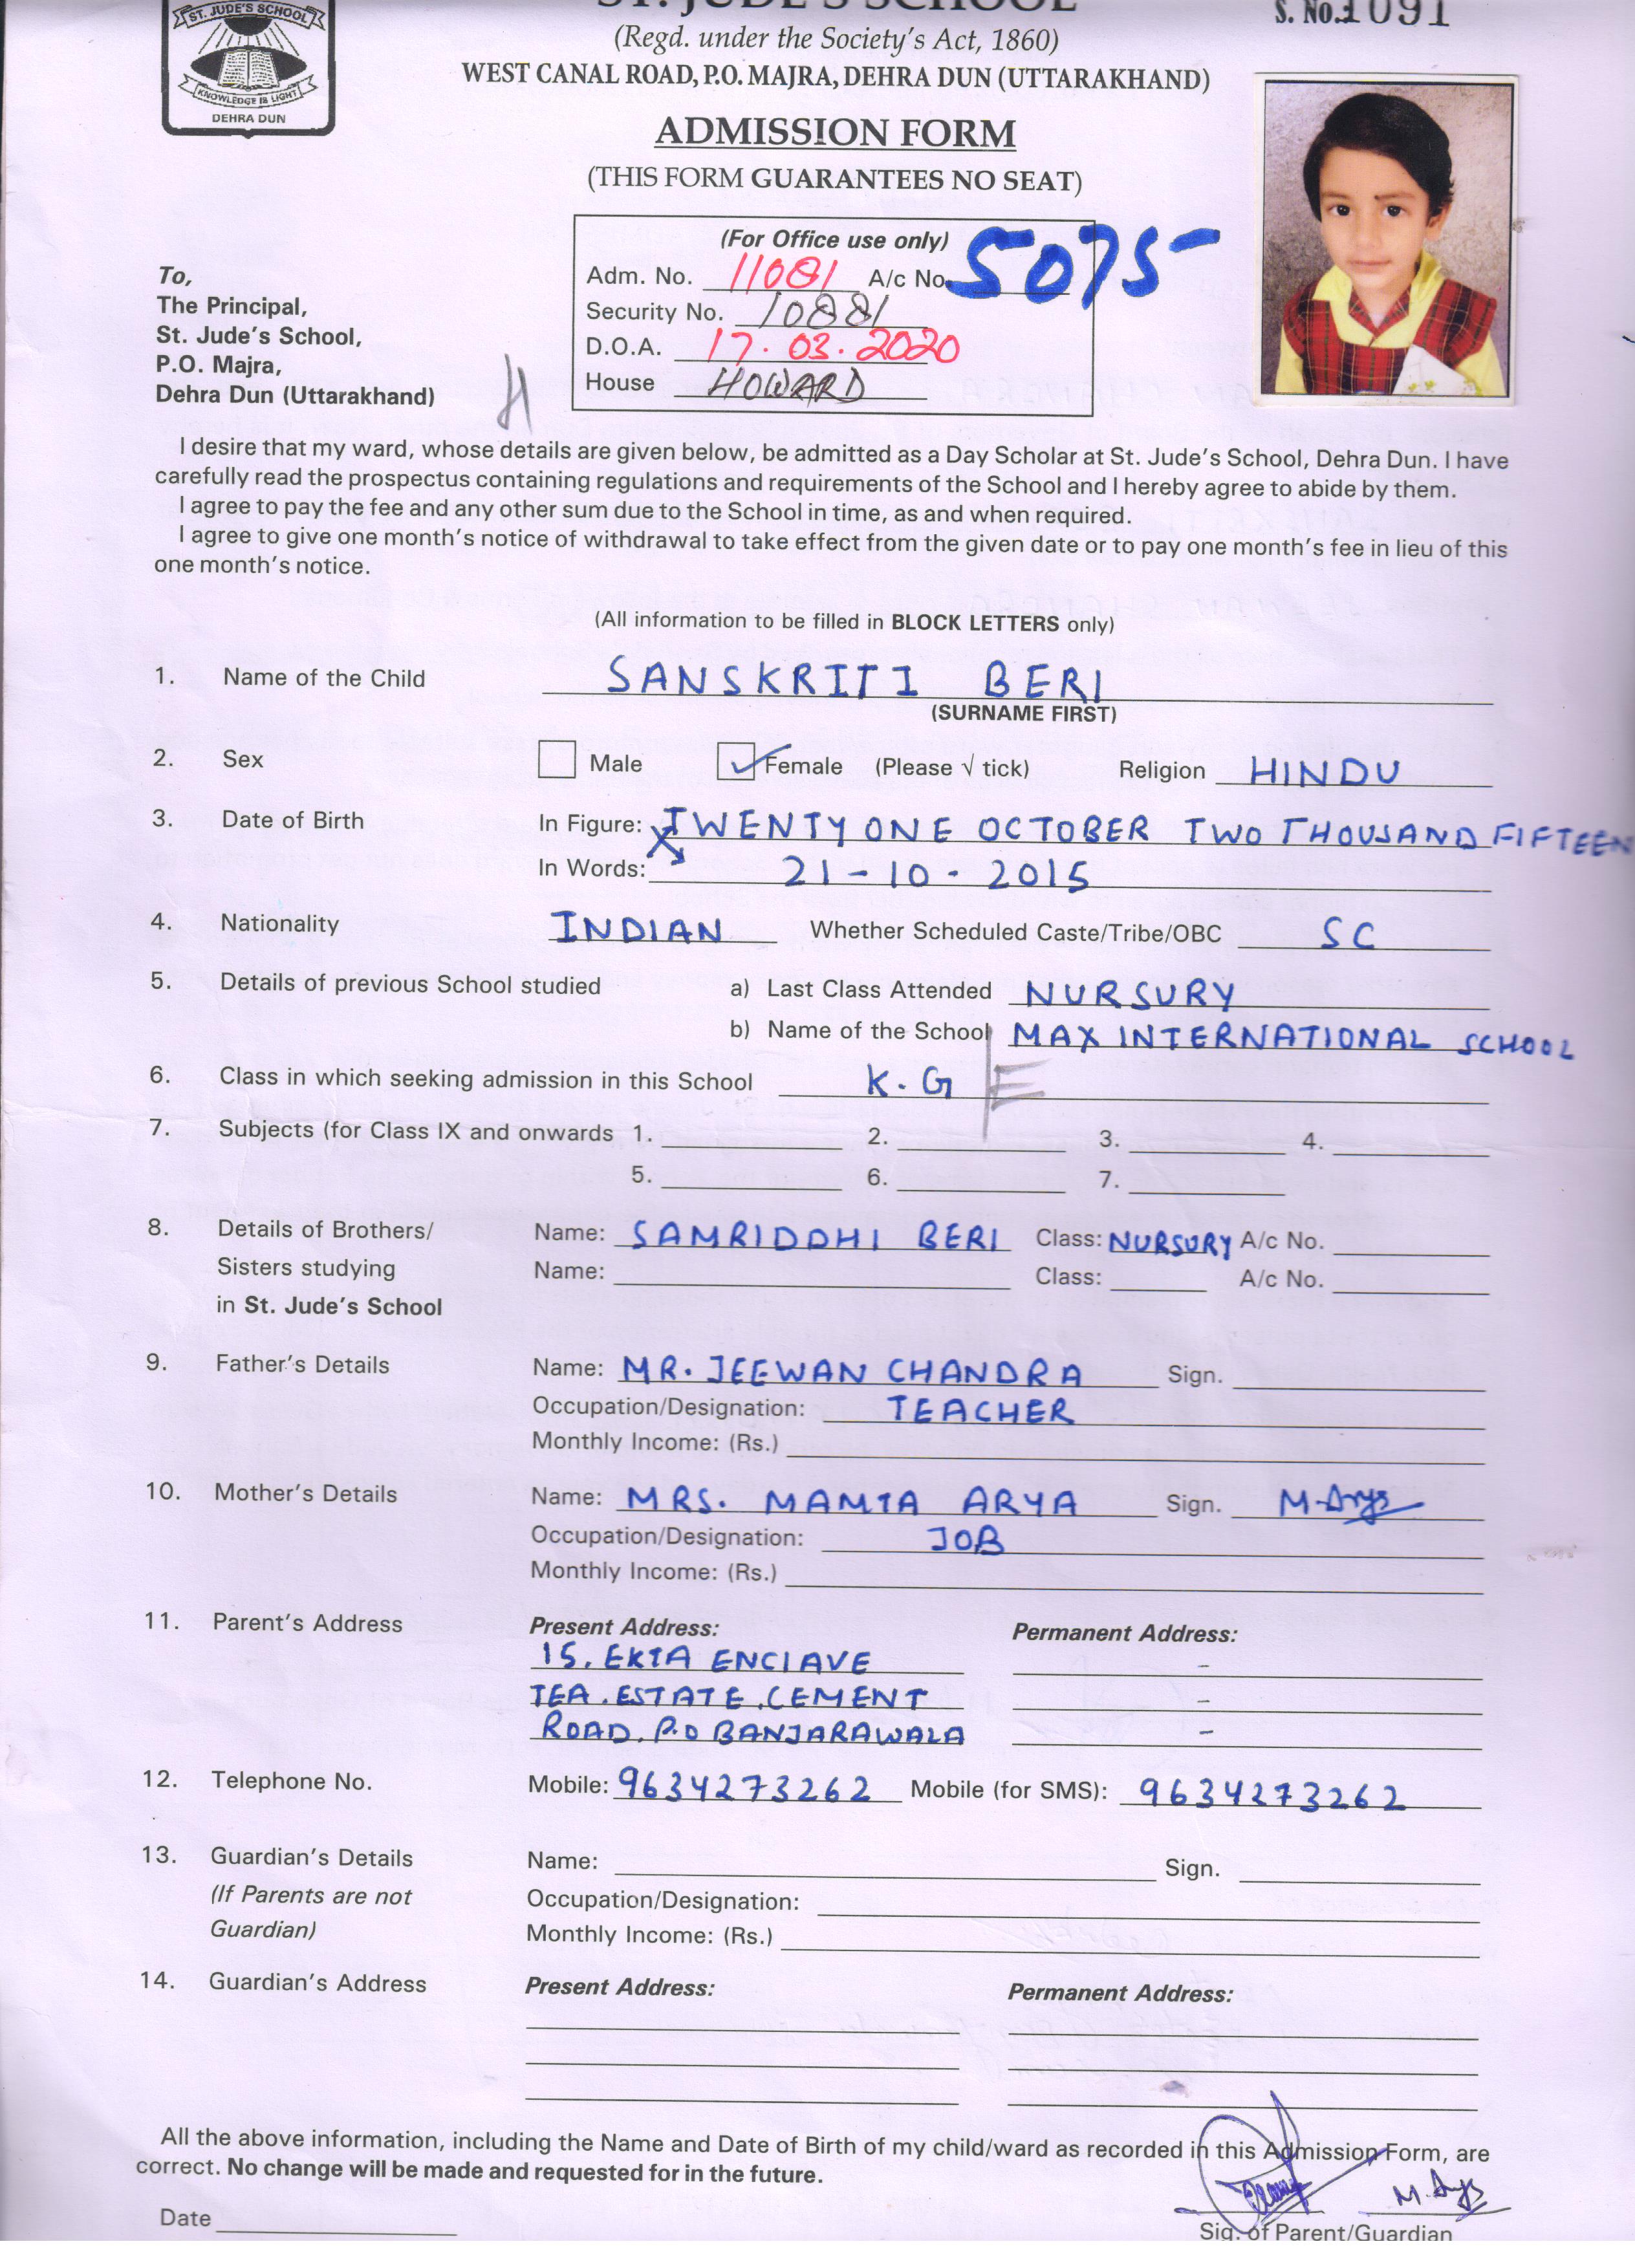 ST. JUDE'S SCHOOL
KNOWLEDGE IS LIGHT
DEHRA DUN
ST. JUDE'S SCHOOL
S. No. 1091
(Regd. under the Society's Act, 1860)
WEST CANAL ROAD, P.O. MAJRA, DEHRA DUN (UTTARAKHAND)
ADMISSION FORM
(THIS FORM GUARANTEES NO SEAT)
(For Office use only)
Adm. No. 11081 A/c No. 5075
Security No. 10881
D.O.A. 17.03.2020
House HOWARD
To,
The Principal,
St. Jude's School,
P.O. Majra,
Dehra Dun (Uttarakhand)
H
I desire that my ward, whose details are given below, be admitted as a Day Scholar at St. Jude's School, Dehra Dun. I have
carefully read the prospectus containing regulations and requirements of the School and I hereby agree to abide by them.
I agree to pay the fee and any other sum due to the School in time, as and when required.
I agree to give one month's notice of withdrawal to take effect from the given date or to pay one month's fee in lieu of this
one month's notice.
(All information to be filled in BLOCK LETTERS only)
1. Name of the Child SANSKRITI BERI
(SURNAME FIRST)
2. Sex Male Female (Please √ tick) Religion HINDU
3. Date of Birth In Figure: TWENTY ONE OCTOBER TWO THOUSAND FIFTEEN
In Words: 21-10-2015
4. Nationality INDIAN Whether Scheduled Caste/Tribe/OBC SC
5. Details of previous School studied a) Last Class Attended NURSURY
b) Name of the School MAX INTERNATIONAL SCHOOL
6. Class in which seeking admission in this School K.G E
7. Subjects (for Class IX and onwards 1. 2. 3. 4.
5. 6. 7.
8. Details of Brothers/ Name: SAMRIDDHI BERI Class: NURSURY A/c No.
Sisters studying Name: Class: A/c No.
in St. Jude's School
9. Father's Details Name: MR. JEEWAN CHANDRA Sign.
Occupation/Designation: TEACHER
Monthly Income: (Rs.)
10. Mother's Details Name: MRS. MAMTA ARYA Sign. M.Arya
Occupation/Designation: JOB
Monthly Income: (Rs.)
11. Parent's Address Present Address: Permanent Address:
15, EKTA ENCLAVE -
TEA.ESTATE,CEMENT -
ROAD, P.O BANJARAWALA -
12. Telephone No. Mobile: 9634273262 Mobile (for SMS): 9634273262
13. Guardian's Details Name: Sign.
(If Parents are not Occupation/Designation:
Guardian) Monthly Income: (Rs.)
14. Guardian's Address Present Address: Permanent Address:
All the above information, including the Name and Date of Birth of my child/ward as recorded in this Admission Form, are
correct. No change will be made and requested for in the future.
M.Arya
Date
Sig. of Parent/Guardian